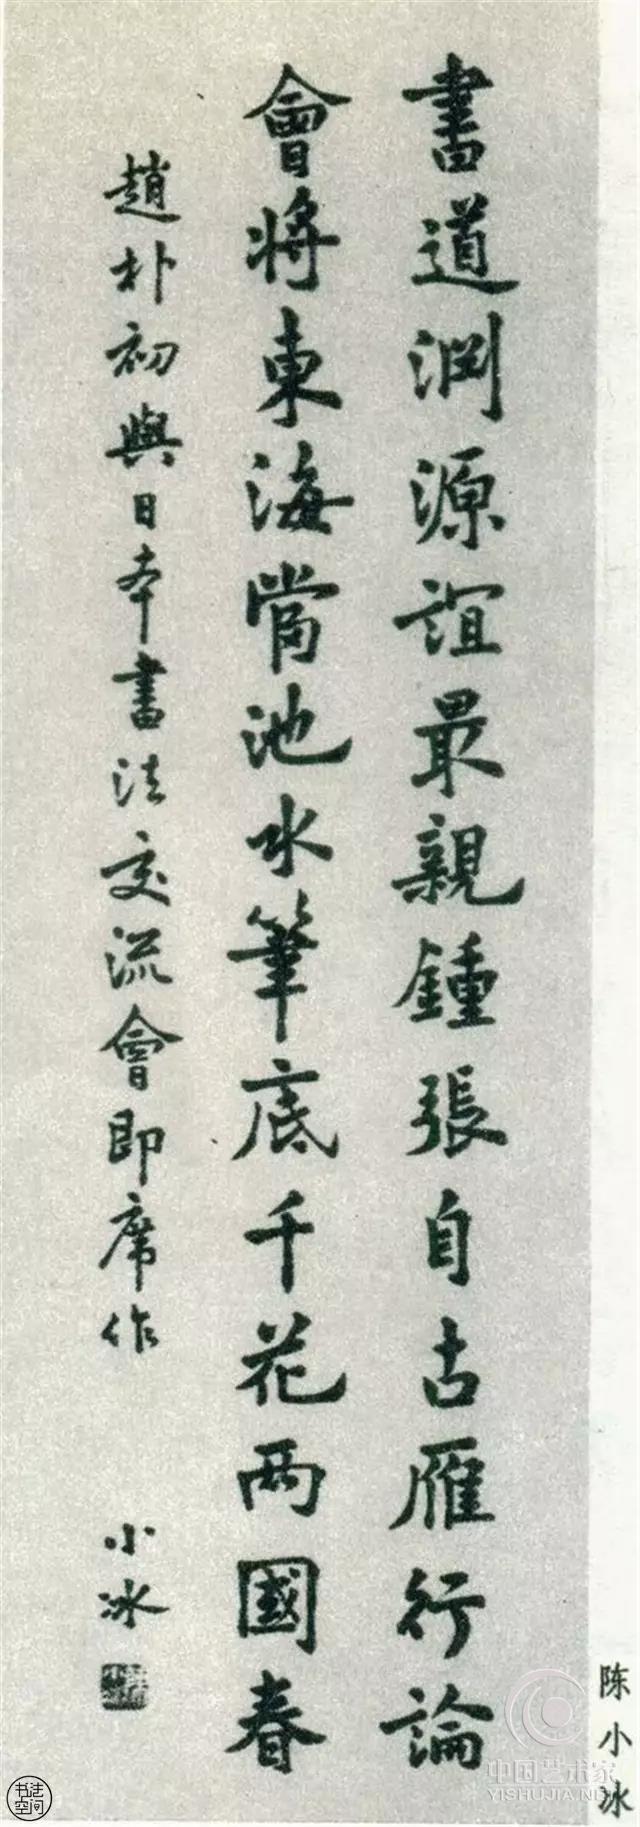 書道渊源誼最親鍾張自古雁行論
會將東海當池水筆底千花两國春
趙朴初與日本書法交流會即席作
小冰
陈小冰
中国艺术家
YISHUJIA.NET
书法空间